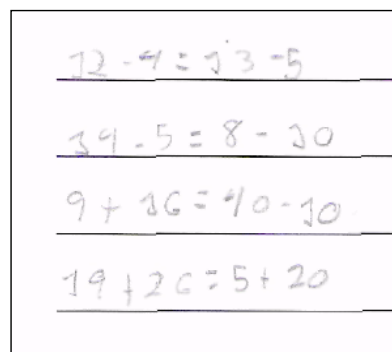 12 - 4 = 13 - 5
19 - 5 = 8 - 10
9 + 16 = 40 - 10
19 + 26 = 5 + 20